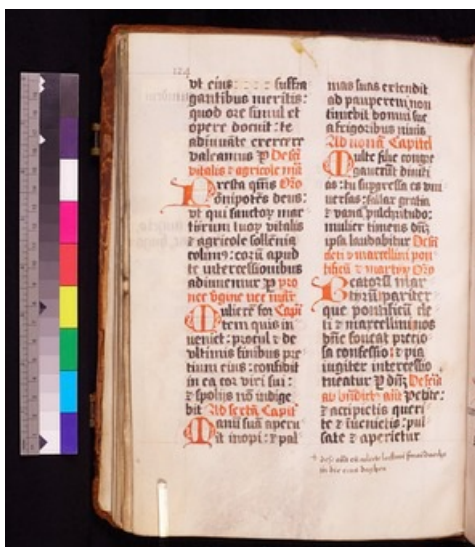 124
vt eius suffra
gantibus meritis:
quod ore simul et
opere docuit: te
adiuuãte exercere
valeamus p Desctĩ
vitalis et agricole mr̃
Presta qm̃s Oro
oĩnipotẽs deus:
vt qui sanctoꝝ mar
tirum tuoꝝ vitalis
et agricole sollẽnia
colim9: eoꝝ apud
te intercessionibus
adiuuemur p
Mulierẽ for Capĩ
tem quis in
ueniet: procul et de
vltimis finibus pre
cium eius: confidit
in ea cor viri sui:
et spolijs nõ indige
bit Ad sextã Capit
Manũ suã aperu
it inopi: et pal
mas suas extendit
ad pauperem non
timebit domui sue
a frigoribus niuis
Ad nonã Capitel
Multe filie congre
gauerũt diuiti
as: tu supgressa es vni
uersas: fallax gratia
et vana pulchritudo:
mulier timens dñm
ipsa laudabitur
et marcellini pon
tificũ et martiꝝ Oro
Beatorũ mar
tyrũ pariter
que pontificũ
ti et marcellini nos
dñe foueat precio
sa confessio: et pia
iugiter intercessio
tueatur p dñm
Petite:
et accipietis queri
te et inuenietis: pul
sate et aperietur
in die